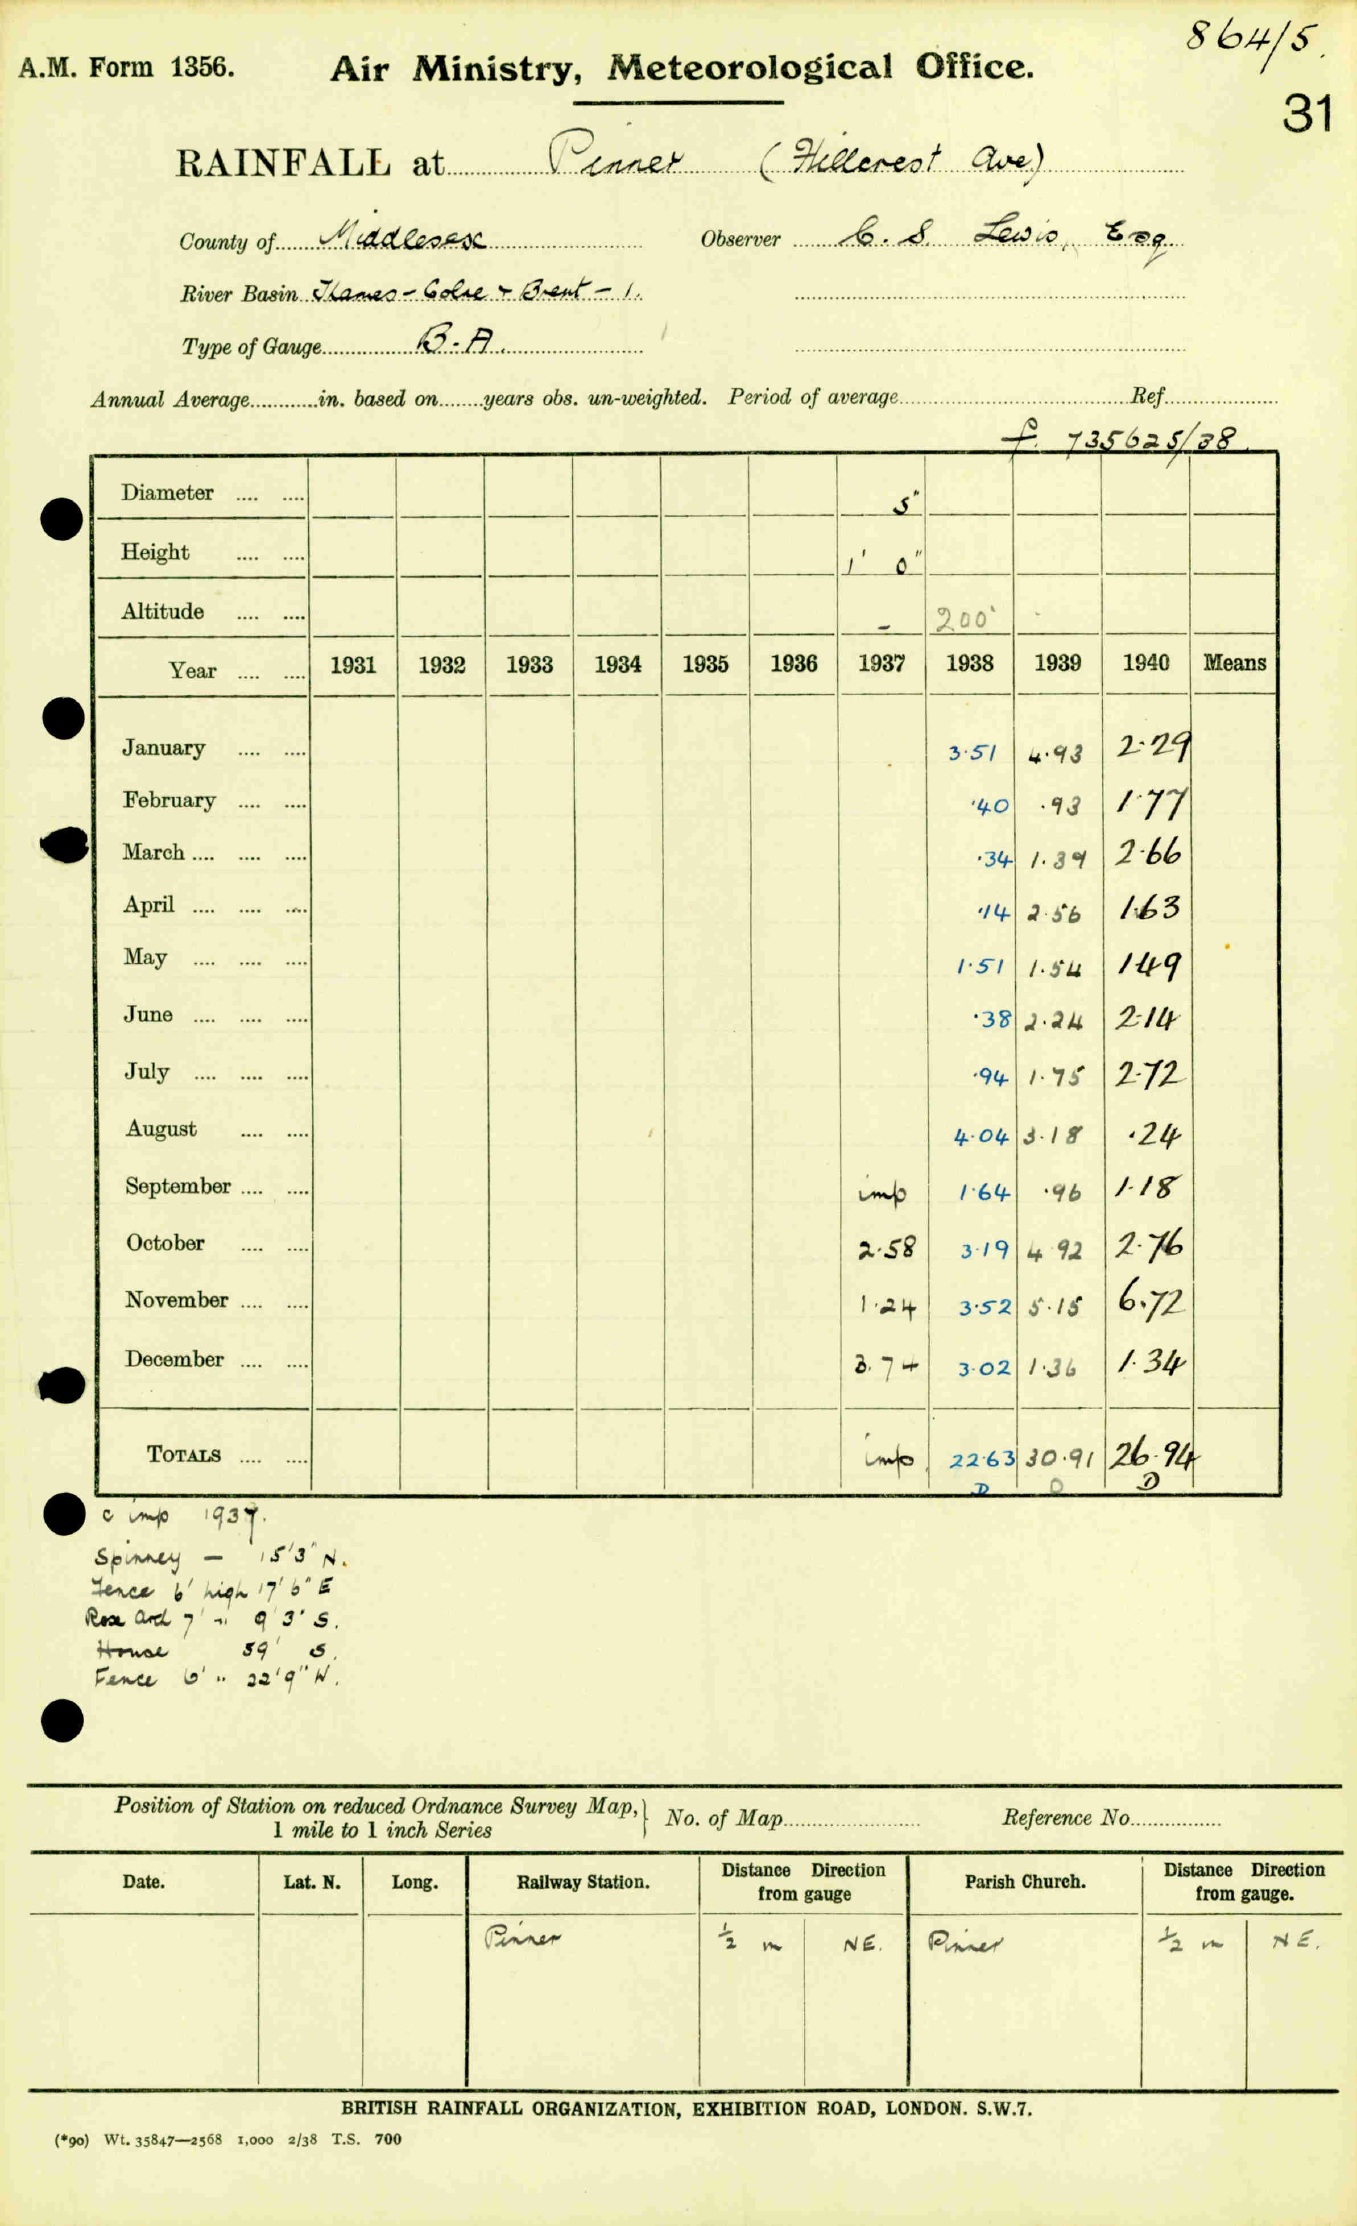 864/5.
A.M. Form 1356. Air Ministry, Meteorological Office.
31
RAINFALL at Pinner (Hillcrest Ave)
County of Middlesex Observer C. S. Lewis, Esq
River Basin Thames - Colne & Brent - 1.
Type of Gauge B.A.
Annual Average in. based on years obs. un-weighted. Period of average Ref.
f. 735625/38.
Diameter .... .... 5"
Height .... .... 1' 0"
Altitude .... .... - 200'
Year .... .... 1931 1932 1933 1934 1935 1936 1937 1938 1939 1940 Means
January .... .... 3.51 4.93 2.29
February .... .... .40 .93 1.77
March .... .... .... .34 1.39 2.66
April .... .... .... .14 2.56 1.63
May .... .... .... 1.51 1.54 1.49
June .... .... .... .38 2.24 2.14
July .... .... .... .94 1.75 2.72
August .... .... 4.04 3.18 .24
September .... .... imp 1.64 .96 1.18
October .... .... 2.58 3.19 4.92 2.76
November .... .... 1.24 3.52 5.15 6.72
December .... .... 3.74 3.02 1.36 1.34
TOTALS .... .... imp. 22.63 30.91 26.94
D D D
c imp 1937.
Spinney - 15'3" N.
Fence 6' high 17'6" E
Rose Arch 7' " 9'3" S.
House 59' S.
Fence 6' " 22'9" W.
Position of Station on reduced Ordnance Survey Map, 1 mile to 1 inch Series } No. of Map Reference No.
Date. Lat. N. Long. Railway Station. Distance Direction from gauge Parish Church. Distance Direction from gauge.
Pinner ½ m NE. Pinner ½ m NE.
BRITISH RAINFALL ORGANIZATION, EXHIBITION ROAD, LONDON. S.W.7.
(*90) Wt. 35847—2568 1,000 2/38 T.S. 700